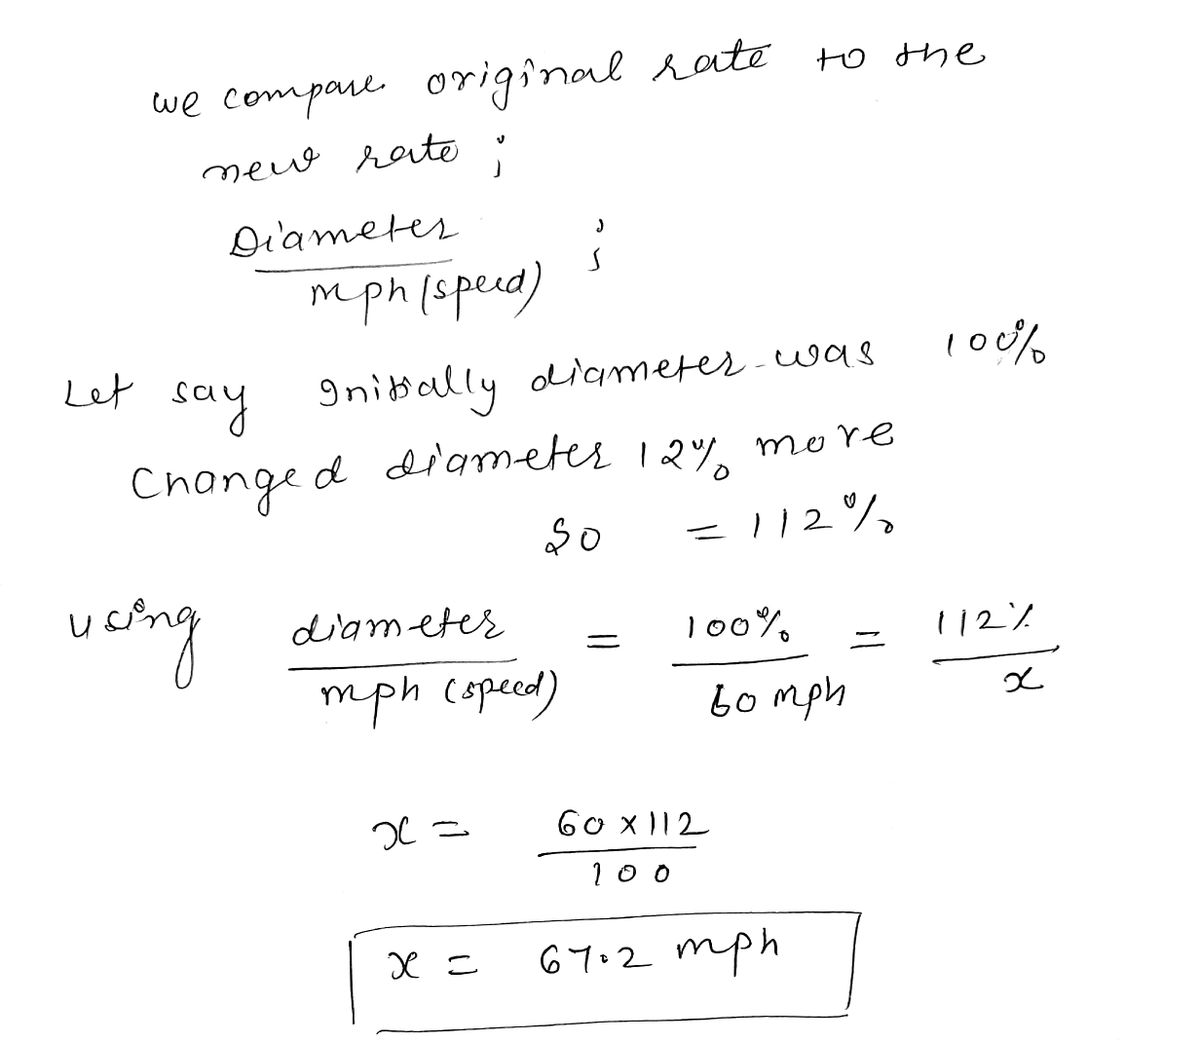 we compare original rate to the
new rate ;
Diameter
mph (speed) ;
Let say Initially diameter was 100%
Changed diameter 12% more
So = 112%
using diameter / mph (speed) = 100% / 60 mph = 112% / x
x = 60 x 112 / 100
x = 67.2 mph